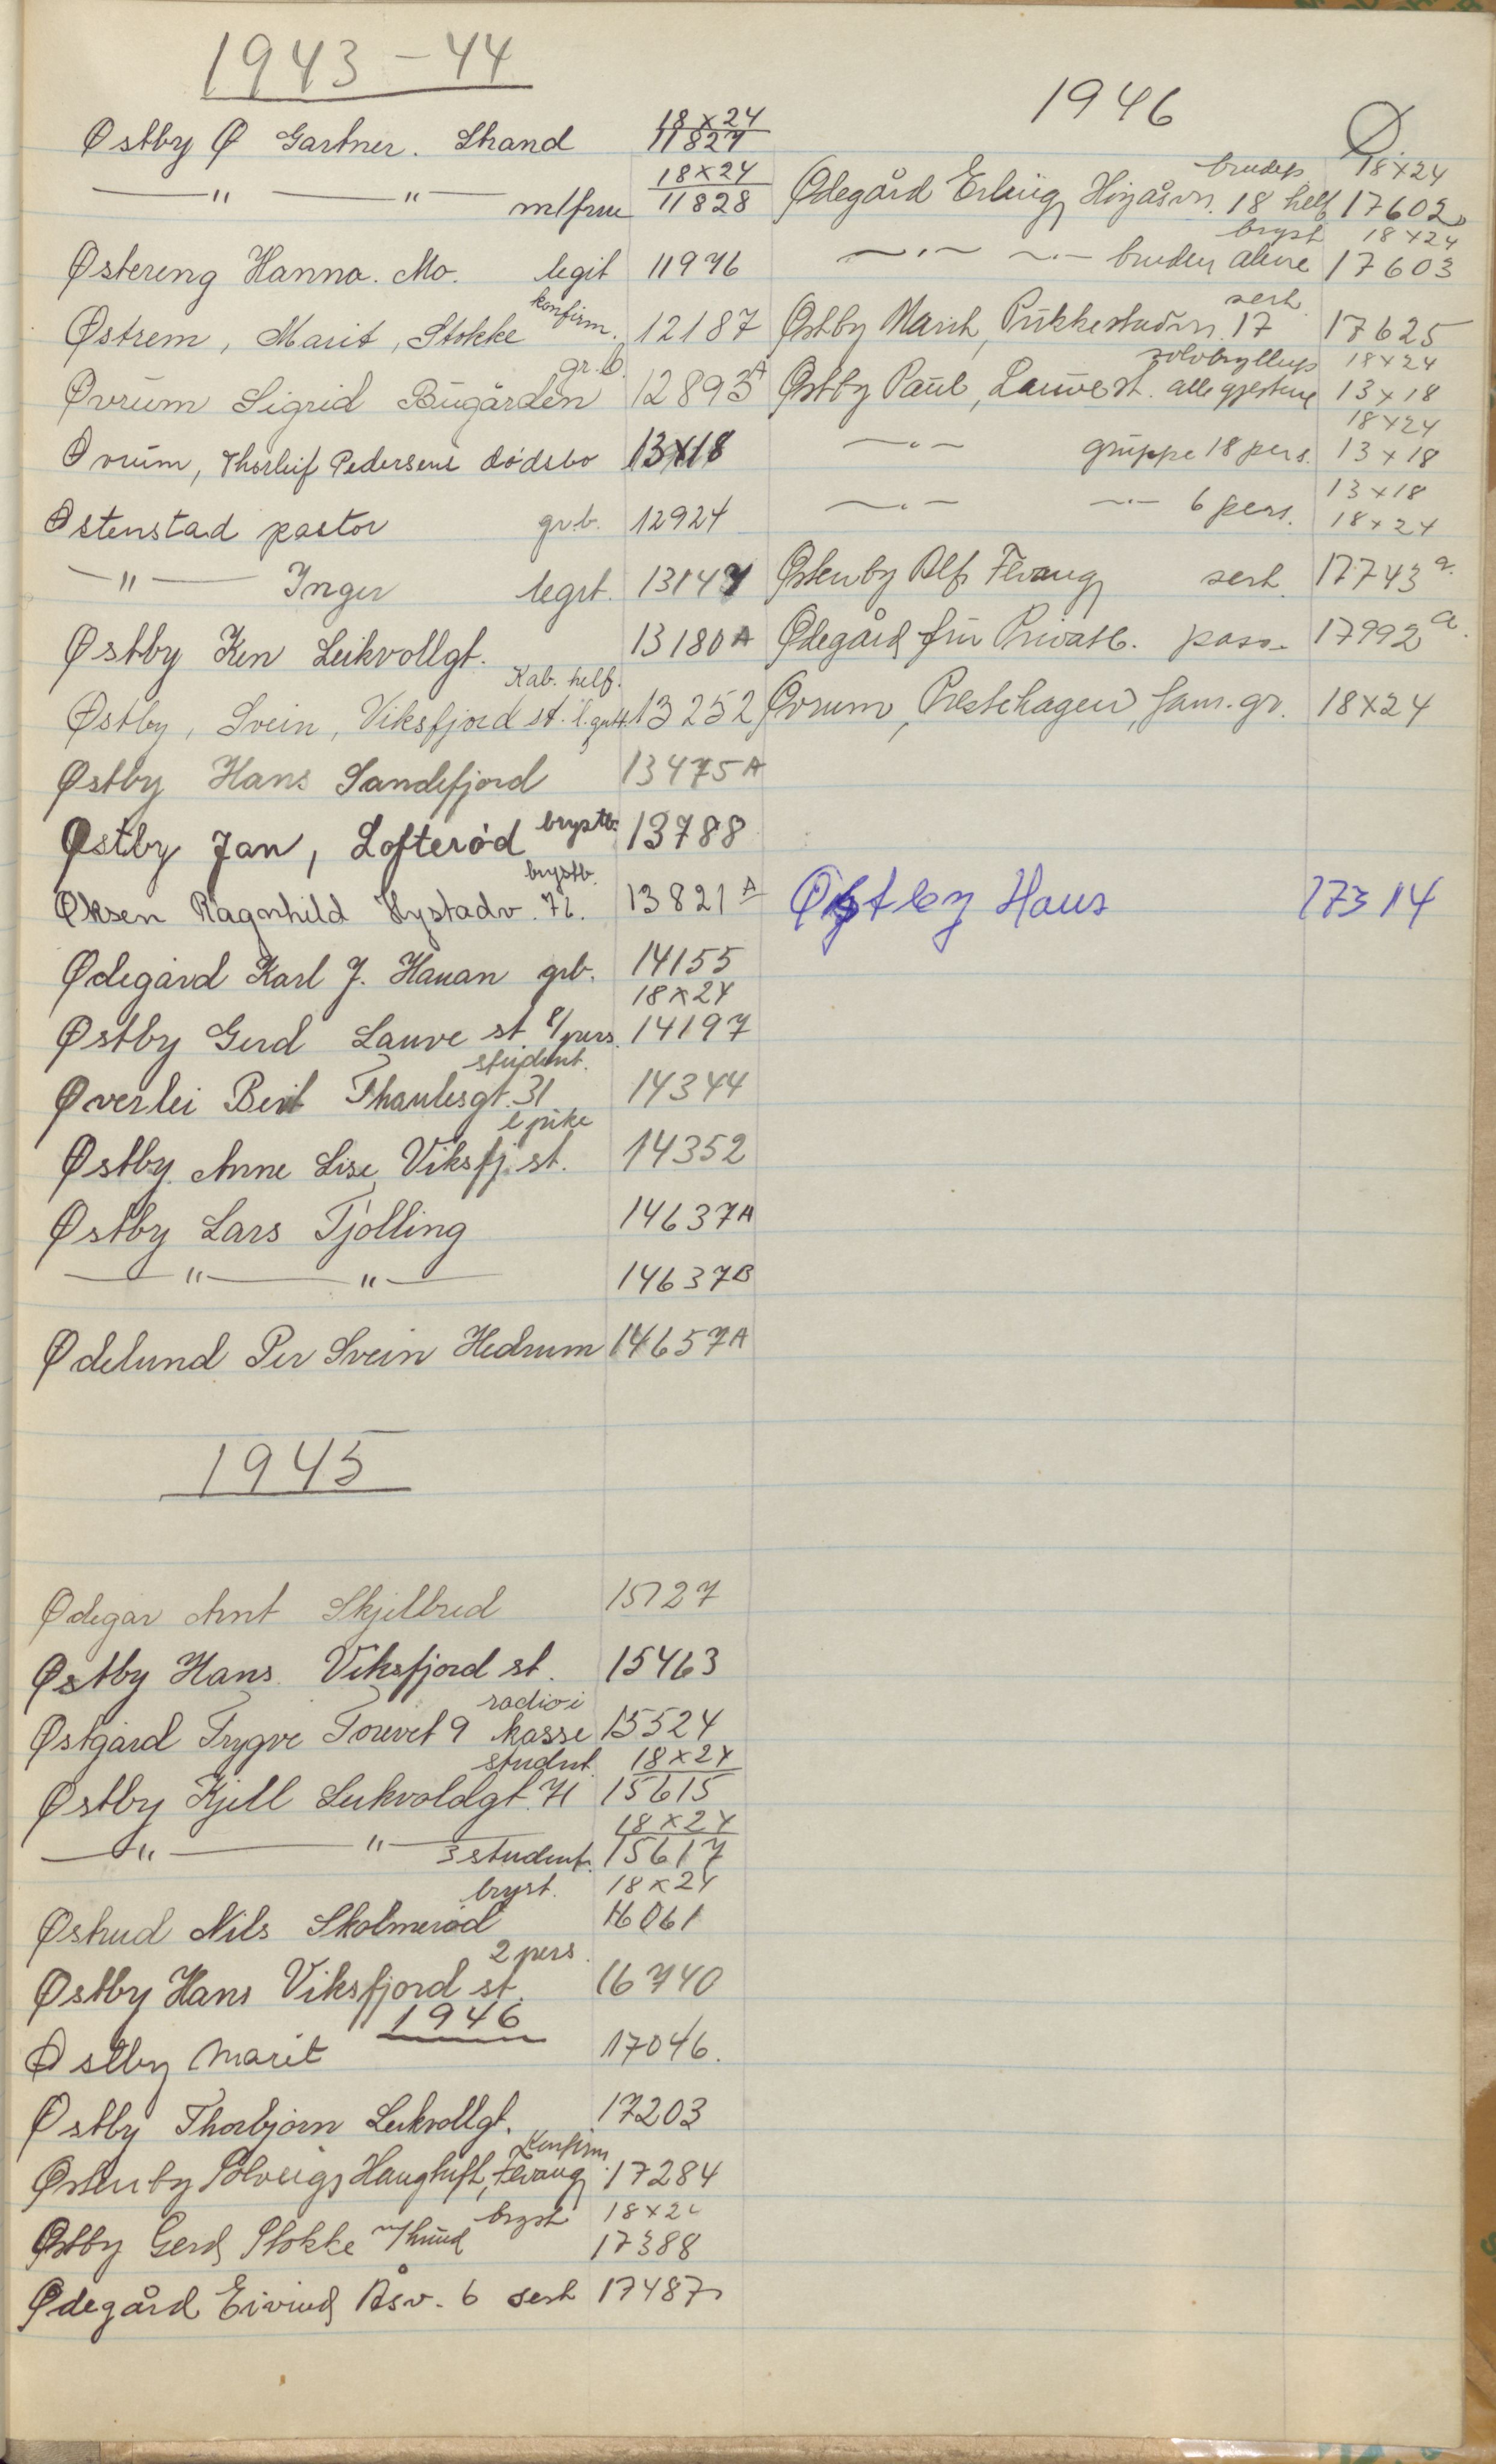 1943-44
Østby Ø Gartner. Strand 18x24 11827
—"— —"— m/frue 18x24 11828
Østereng Hanna. Mo. legit 11976
Østrem, Marit, Stokke konfirm. 12187
Øvrum Sigrid Bugården gr.b. 12893A
Øvrum, Thorleif Pedersens dødsbo 13x18
Østenstad pastor gr.b. 12924
—"— Inger legit. 13147
Østby Ken Leikvollgt. 13180A
Østby, Svein, Viksfjord st. Kab. helf. l.gutt 13252
Østby Hans Sandefjord 13475A
Østby Jan, Lofterød brystb. 13788
Øksen Ragnhild Hystadv. 76. brystb. 13821A
Ødegård Karl J. Hauan grb. 14155
Østby Gerd Lauve st. 8/pers. 18x24 14197
Øverlei Berit Thaulesgt. 31 student. 14344
Østby Anne Lise, Viksfj. st. l pike 14352
Østby Lars Tjølling 14637A
—"— —"— 14637B
Ødelund Per Svein Hedrum 14657A
1945
Ødegar Arnt Skjelbred 15127
Østby Hans. Viksfjord st. 15463
Østgård Trygve Torvet 9 radio i kasse 15524
Østby Kjell Leikvoldgt. 71 student. 18x24 15615
—"— —"— 3 student. 18x24 15617
Østrud Nils Skolmerød bryst. 18x24 16061
Østby Hans Viksfjord st. 2 pers. 16740
1946
Østby Marit 17046.
Østby Thorbjørn Leikvollgt. 17203
Østenby Solveig, Haugtuft, Fevang Konfirm. 17284
Østby Gerd Stokke m/hund bryst 18x24 17388
Ødegård Eivind Åsv. 6 sert 17487
1946
Ø.
Ødegård Erling, Hinåsvn. 18 brudep helf 18x24 17602
—"— —"— bruden alene bryst 18x24 17603
Østby Marit, Prikkestadvn. 17 sert. 17625
Østby Paul, Lauve st. sølvbryllup alle gjestene 18x24 13x18
—"— gruppe 18 pers. 18x24 13x18
—"— —"— 6 pers. 13x18 18x24
Østenby Alf, Fevang sert. 17743a.
Ødegård fru Privatb. pass. 17992a.
Øvrum, Prestehagen, fam. gr. 18x24
Østby Hans 17314